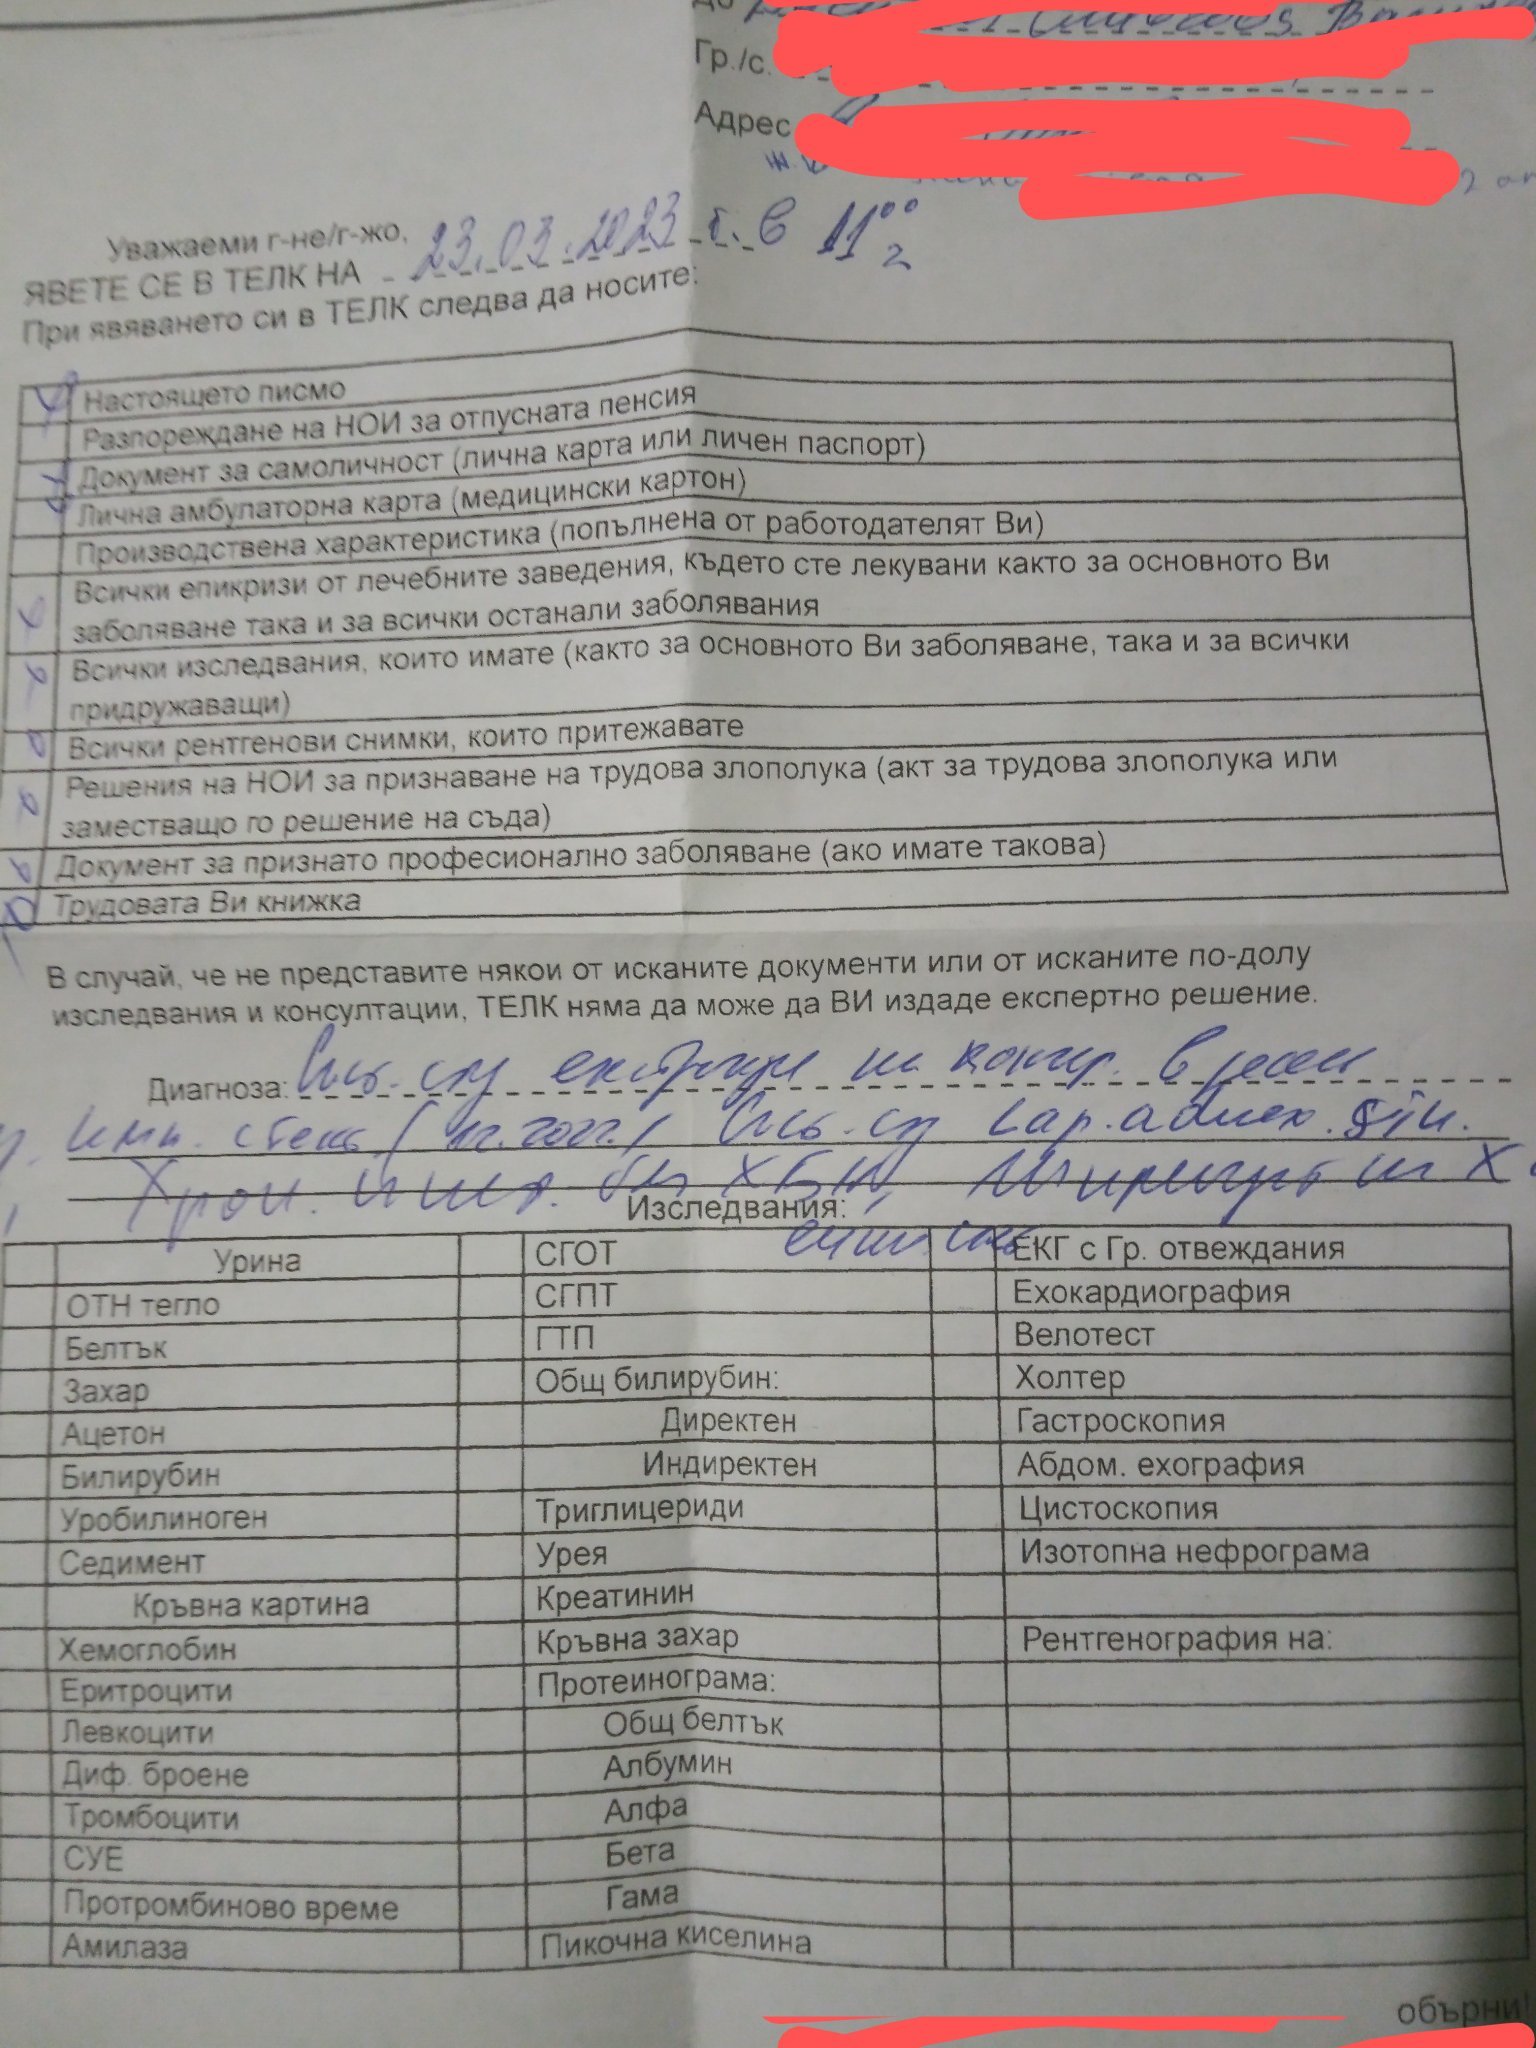 Гр./с.
Адрес
Уважаеми г-не/г-жо,
ЯВЕТЕ СЕ В ТЕЛК НА 23.03.2023 г. в 11⁰⁰
При явяването си в ТЕЛК следва да носите:
Настоящето писмо
Разпореждане на НОИ за отпусната пенсия
Документ за самоличност (лична карта или личен паспорт)
Лична амбулаторна карта (медицински картон)
Производствена характеристика (попълнена от работодателят Ви)
Всички епикризи от лечебните заведения, където сте лекувани както за основното Ви
заболяване така и за всички останали заболявания
Всички изследвания, които имате (както за основното Ви заболяване, така и за всички
придружаващи)
Всички рентгенови снимки, които притежавате
Решения на НОИ за признаване на трудова злополука (акт за трудова злополука или
заместващо го решение на съда)
Документ за признато професионално заболяване (ако имате такова)
Трудовата Ви книжка
В случай, че не представите някои от исканите документи или от исканите по-долу
изследвания и консултации, ТЕЛК няма да може да ВИ издаде експертно решение.
Диагноза:
Хрон. ХБН
Изследвания:
Урина СГОТ ЕКГ с Гр. отвеждания
ОТН тегло СГПТ Ехокардиография
Белтък ГТП Велотест
Захар Общ билирубин: Холтер
Ацетон Директен Гастроскопия
Билирубин Индиректен Абдом. ехография
Уробилиноген Триглицериди Цистоскопия
Седимент Урея Изотопна нефрограма
Кръвна картина Креатинин
Хемоглобин Кръвна захар Рентгенография на:
Еритроцити Протеинограма:
Левкоцити Общ белтък
Диф. броене Албумин
Тромбоцити Алфа
СУЕ Бета
Протромбиново време Гама
Амилаза Пикочна киселина
обърни!